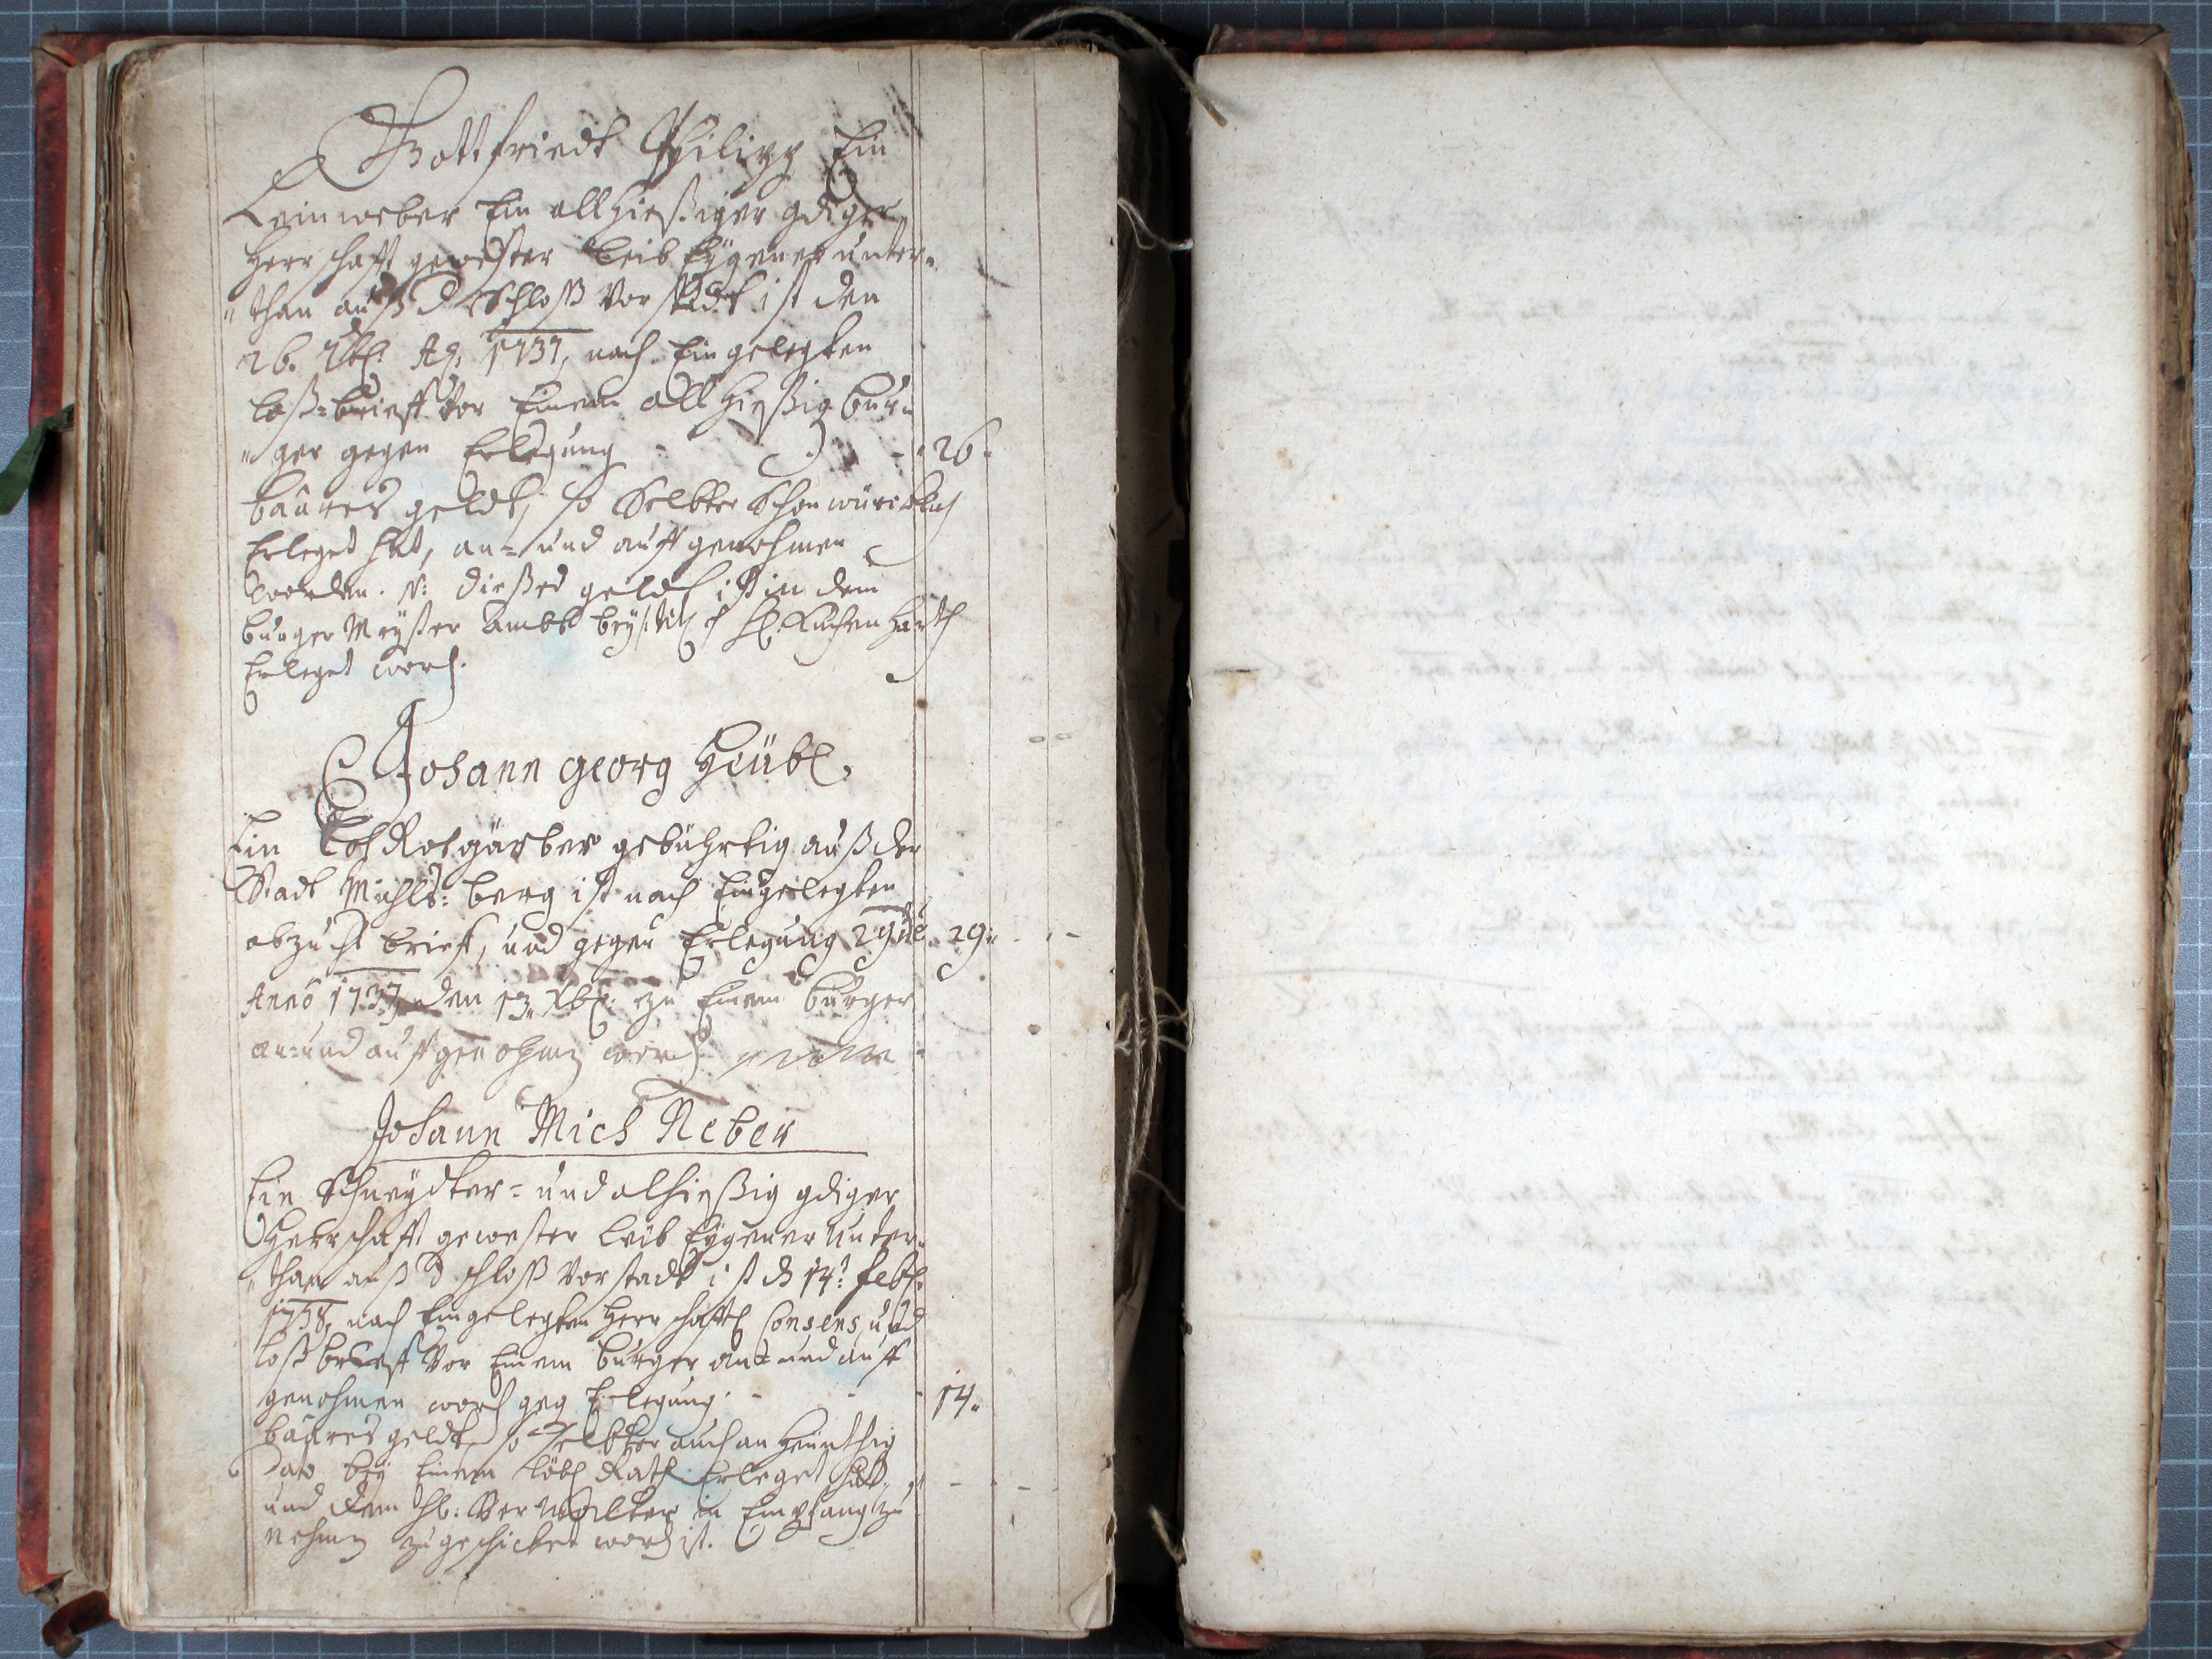 Gottfriedt Philipp Ein
Leinweber Ein allhießiger gdiger
Herrschafft gewester Leib Eÿgener unter„
„than auß d Schloß Vorstadt ist den
26. Ao: 1737, nach Eingelegten
loß=brieff Vor Einem allhießig bur„
„ger gegen Erlegung - 26„
baares geldt, so Selbter Schon würcklich
Erleget hat, an= und auffgenohmen
worden. N: dießes geldt ist in dem
burger Meÿster ambt beÿ H:
Erleget word.
Johann georg Heübl.
Ein Rotgärber gebührtig auß der
Stadt Mühls: berg ist nach Eingelegten
abzucht brieff, und gegen Erlegung 29 29„
Anno 1737, den 13„ Xb: zu Einem burger
an= und auffgenohmen word.
Johann Mich Reber
Ein Schneÿdter= und alhießig gdiger
Herrschafft gewester leib Eÿgener unter„
„than auß d schloß Vorstadt ist d 14t: feb:
1738, nach Eingelegten Herrschafftl Consens und
loßbrieff Vor Einem burger an= und auff
genohmen word geg Erlegung. - 14„
baares geldt, so Selbter auch an
dato beÿ Einem löbl Rath Erleget hat,
und dem H: Verwalter in Empfang zu
nehmen zugeschicket word ist.